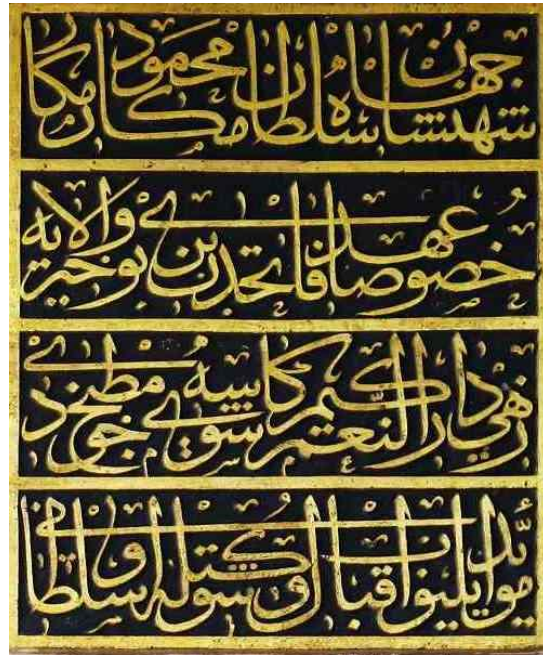 شهنشاه جهان سلطان محمود مكارمكار
خصوصا عهد فاتحدن برى بو خير والايه
زهى دار النعم كيم كاسه شوى مطبخ جودى
مؤيد ايليوب اقبال و شوكتله او سلطانى